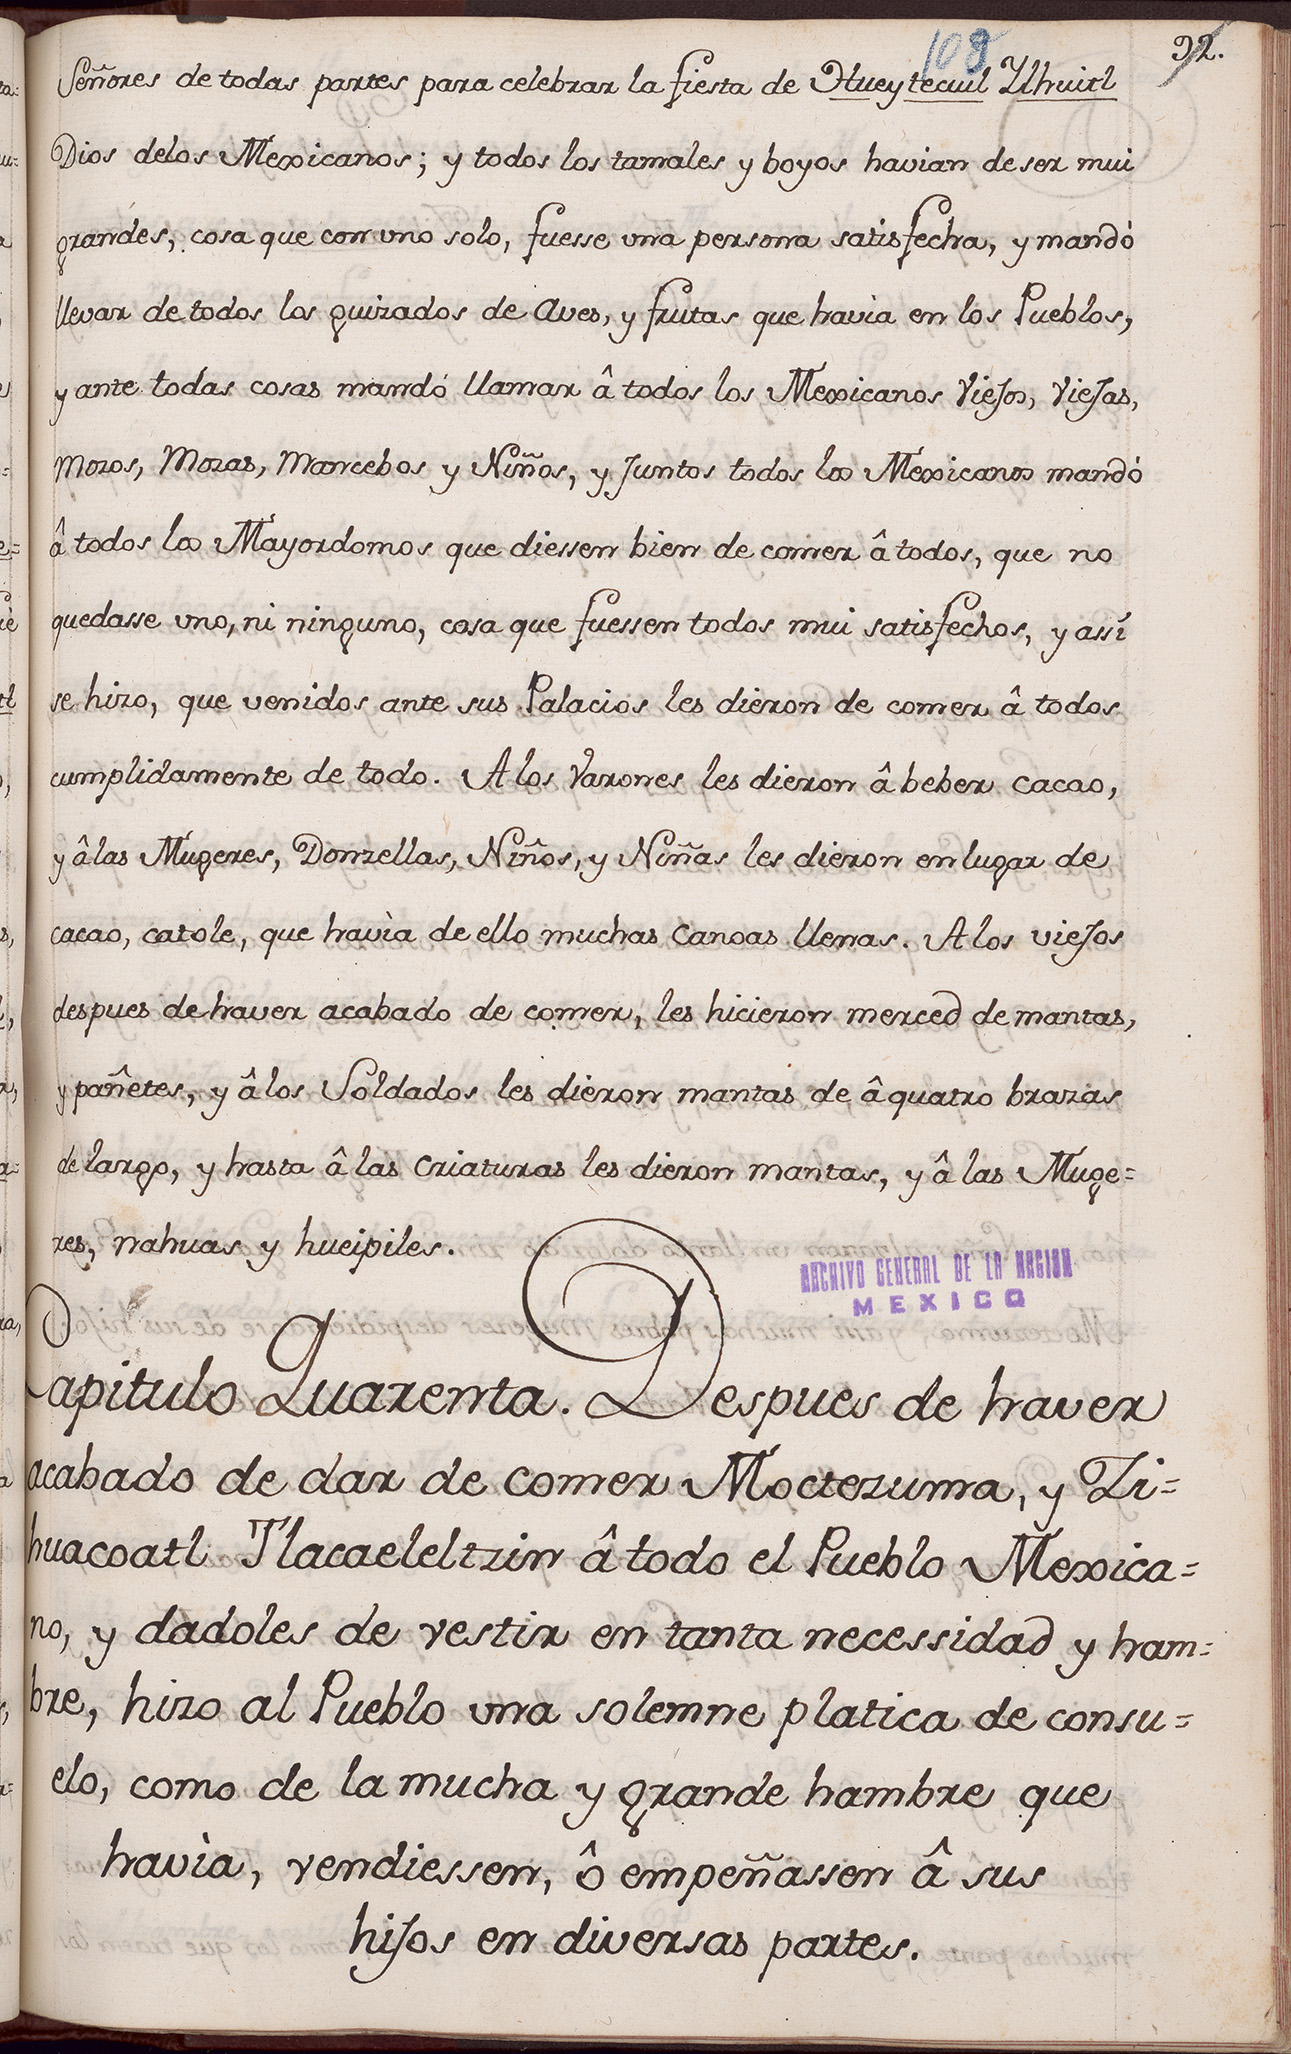 108
92.
Señores de todas partes para celebrar la fiesta de Hueytecuil Ylhuitl
Dios delos Mexicanos; y todos los tamales y boyos havian de ser mui
grandes, cosa que con vno solo, fuesse vna persona satisfecha, y mandó
llevar de todos los guizados de Aves, y frutas que havia en los Pueblos,
y ante todas cosas mandó llamar â todos los Mexicanos Viejos, Viejas,
Mozos, Mozas, Mancebos y Niños, y juntos todos los Mexicanos mandó
â todos los Mayordomos que diessen bien de comer â todos, que no
quedasse vno, ni ninguno, cosa que fuessen todos mui satisfechos, y assi
se hizo, que venidos ante sus Palacios les dieron de comer â todos
cumplidamente de todo. A los Varones les dieron â beber cacao,
y âlas Mugeres, Donzellas, Niños, y Niñas les dieron en lugar de
cacao, catole, que havìa de ello muchas Canoas llenas. A los viejos
despues de haver acabado de comer, les hicieron merced de mantas,
y pañetes, y âlos Soldados les dieron mantas de â quatro brazas
de largo, y hasta â las Criaturas les dieron mantas, y â las Muge=
res, nahuas y hueipiles.
ARCHIVO GENERAL DE LA NACION
MEXICO
Capitulo Quarenta. Despues de haver
acabado de dar de comer Moctezuma, y Zi=
huacoatl Tlacaeleltzin â todo el Pueblo Mexica=
no, y dadoles de vestir en tanta necessidad y ham=
bre, hizo al Pueblo vna solemne platica de consu=
elo, como de la mucha y grande hambre que
havìa, vendiessen, ô empeñassen â sus
hijos en diversas partes.